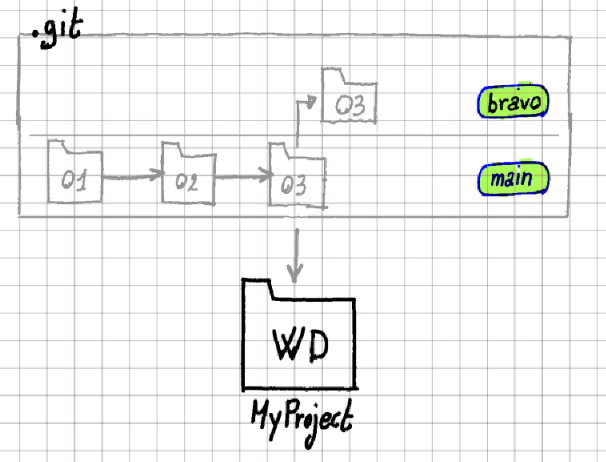 .git
03 bravo
01 02 03 main
WD
MyProject